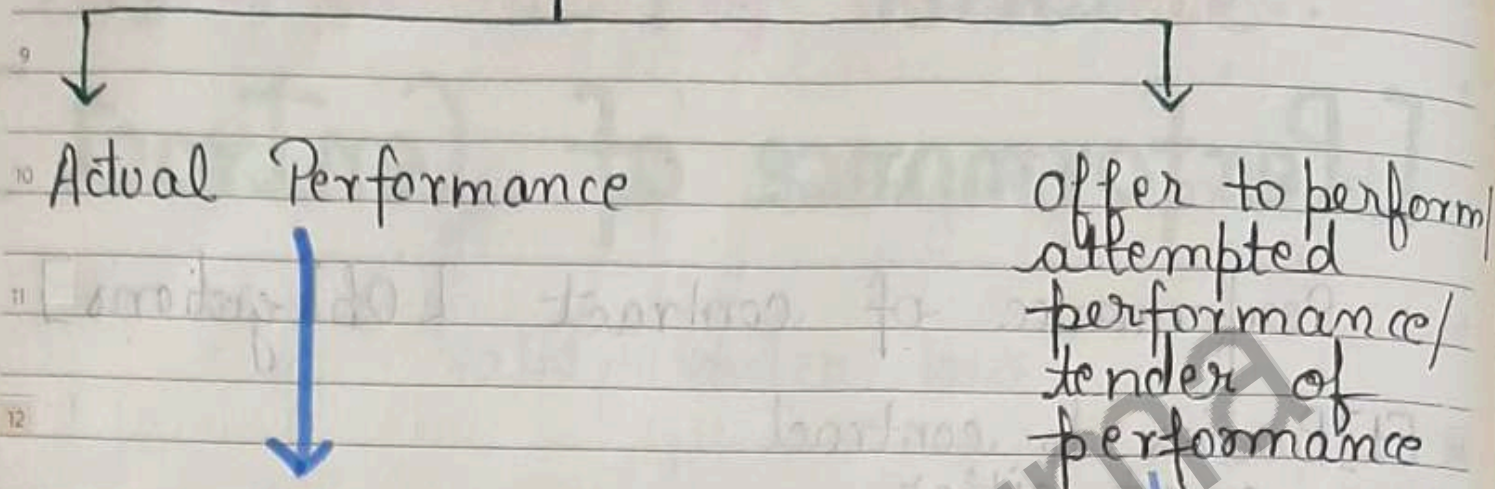 9
10 Actual Performance
offer to perform/
attempted
11
performance/
tender of
12
performance